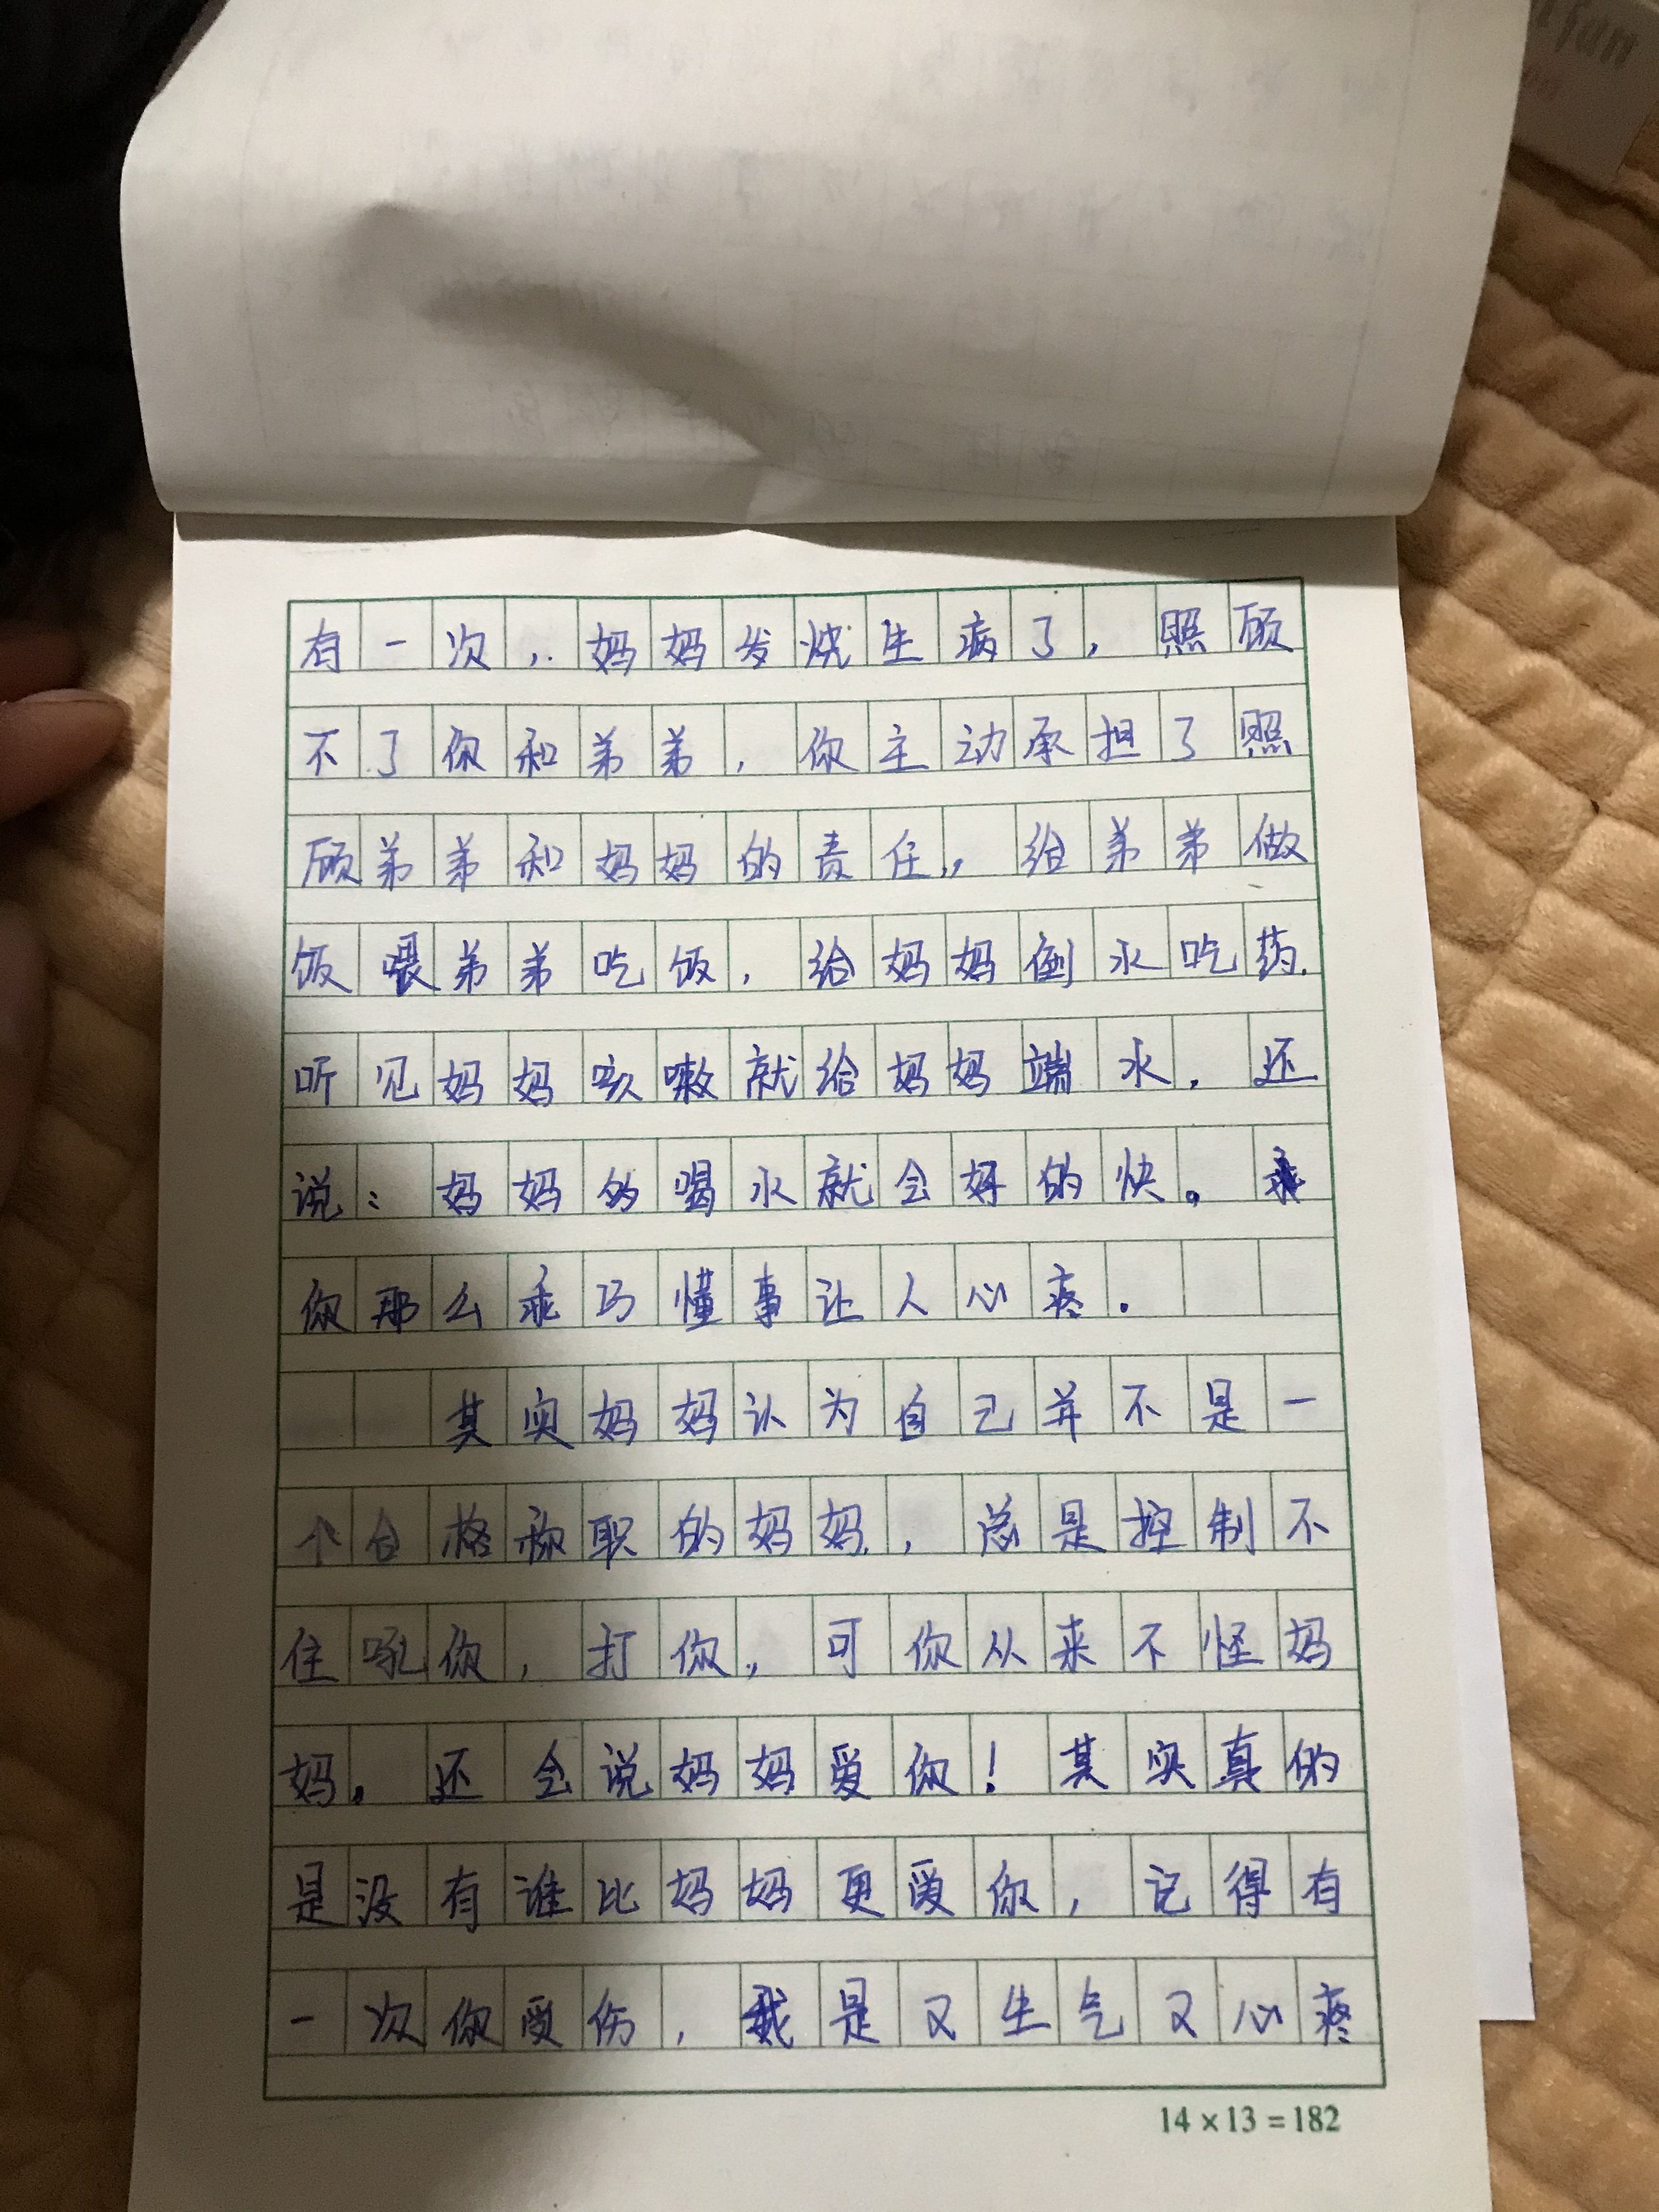 有一次，妈妈发烧生病了，照顾
不了你和弟弟，你主动承担了照
顾弟弟和妈妈的责任，给弟弟做
饭喂弟弟吃饭，给妈妈倒水吃药.
听见妈妈咳嗽就给妈妈端水，还
说：妈妈的喝水就会好的快。
你那么乖巧懂事让人心疼.
其实妈妈认为自己并不是一
个合格称职的妈妈，总是控制不
住吼你，打你，可你从来不怪妈
妈。还会说妈妈爱你！其实真的
是没有谁比妈妈更爱你，记得有
一次你受伤，我是又生气又心疼
14×13=182